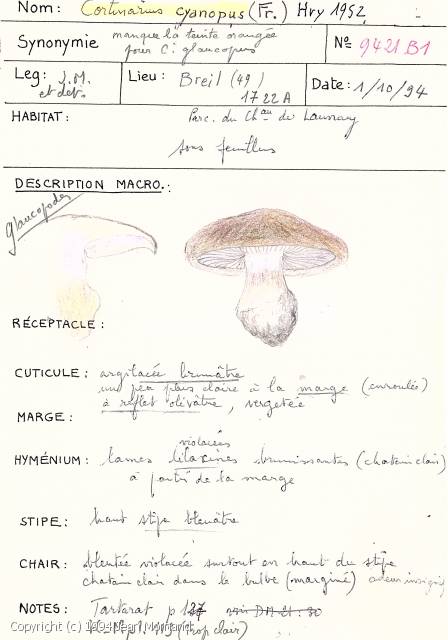 Nom: Cortinarius cyanopus (Fr.) Hry 1952
Synonymie manque la teinte orangée
pour C. glaucopus
N° 9421 B1
Leg: J.M.
et det.
Lieu: Breil (49)
1722 A
Date: 1/10/94
HABITAT: Parc. du Chau de Launay
sous feuillus
DESCRIPTION MACRO.:
glaucopodes
RÉCEPTACLE:
CUTICULE: argilacée brunâtre
un peu plus claire à la marge (enroulée)
à reflet olivâtre, vergetée
MARGE:
violacées
HYMÉNIUM: lames lilacines brunissantes (chatain clair)
à partir de la marge
STIPE: haut stipe bleuâtre
CHAIR: bleutée violacée surtout en haut du stipe
chatain clair dans le bulbe (marginé) odeur insigni
NOTES: Tartarat p 137 voir DM 21:30
Copyright (c) 1994 Jean
(trop clair)